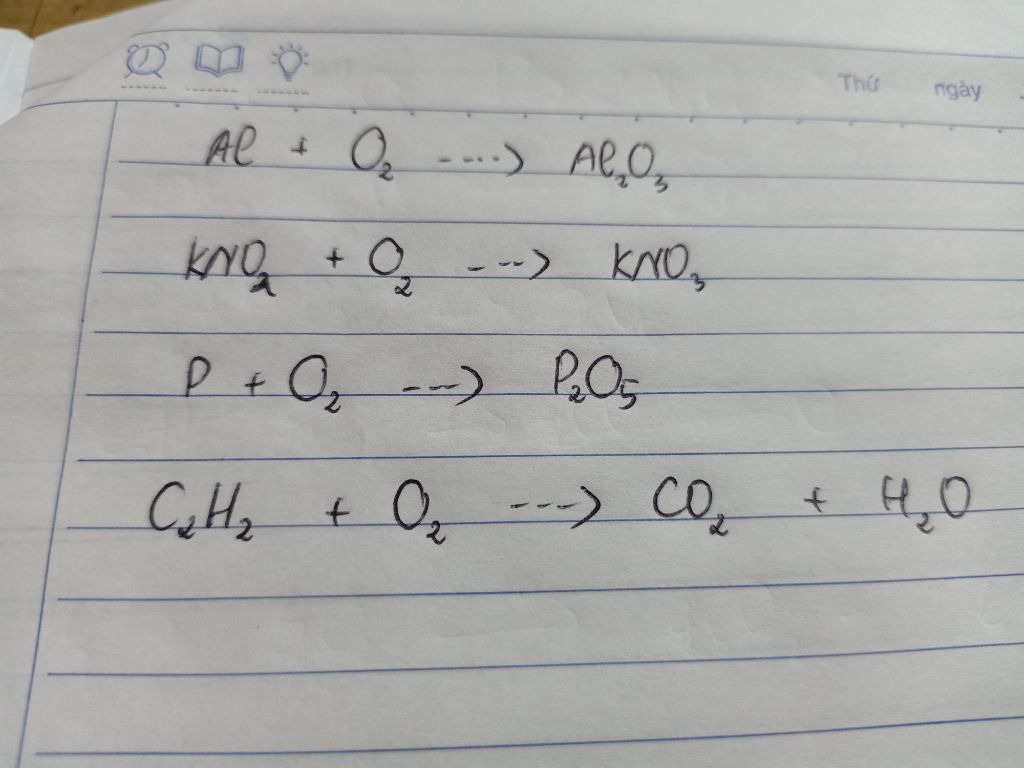 Thứ ngày
Al + O₂ ----> Al₂O₃
KNO₂ + O₂ ---> KNO₃
P + O₂ ---> P₂O₅
C₂H₂ + O₂ ---> CO₂ + H₂O